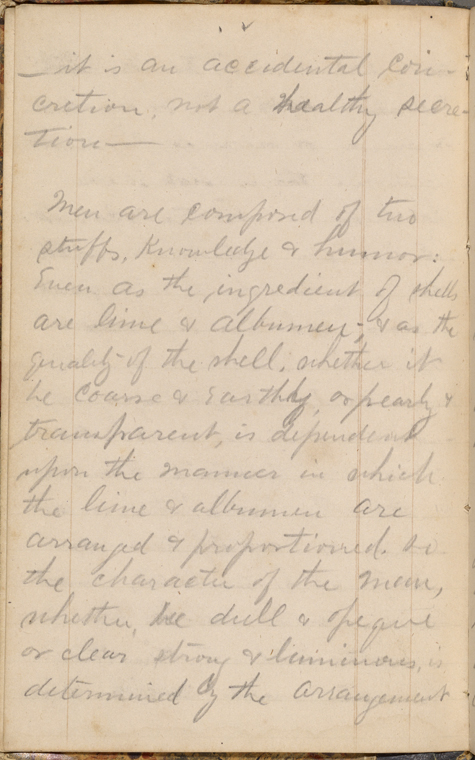 — it is an accidental con-
cretion, not a healthy secre-
tion —
Men are composed of two
stuffs, Knowledge & humor:
Even as the ingredient of shells
are lime & albumen, & as the
quality of the shell, whether it
be coarse & Earthly, or pearly &
transparent, is dependent
upon the manner in which
the lime & albumen are
arranged & proportioned. So
the character of the man,
whether he dull & opaque
or clear strong & luminous, is
determined by the arrangement